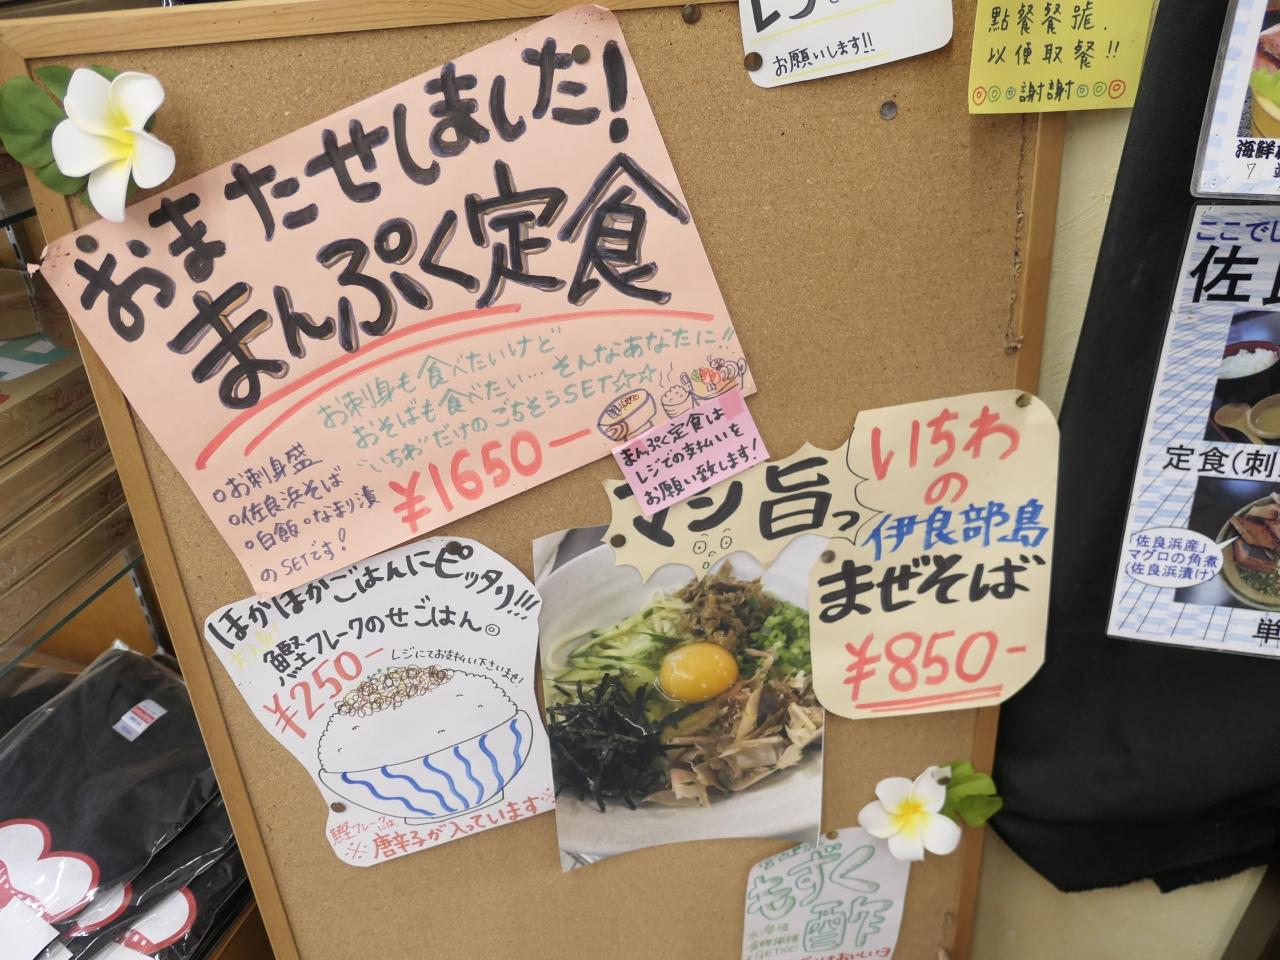 お願いします!!
點餐餐號.
以便取餐!!
謝謝
おまたせしました!
まんぷく定食
お刺身も食べたいけど
おそばも食べたい…そんなあなたに!!
"いちわ"だけのごちそうSET☆☆
¥1650-
お刺身盛
佐良浜そば
白飯・なまり漬
のSETです!
まんぷく定食は
レジでの支払いを
お願い致します!
マジ旨っ
いちわ
の
伊良部島
まぜそば
¥850-
ほかほかごはんにピッタリ!!!
大人気!
鰹フレークのせごはん。
¥250-
レジにてお支払い下さいませ!
鰹フレークには
※唐辛子が入っています※
もずく
酢
海鮮
ここでし
佐良
定食(刺
「佐良浜産」
マグロの角煮
(佐良浜漬け)
単